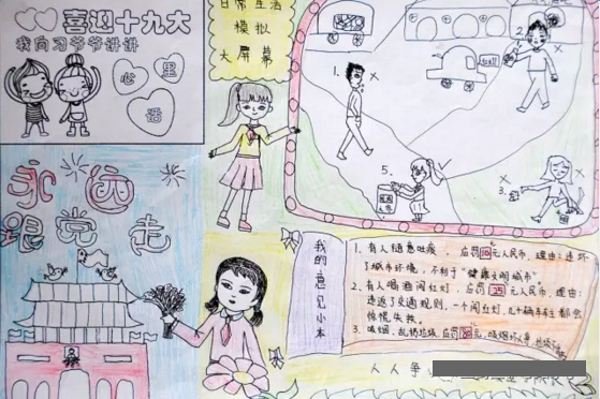 喜迎十九大
我向习爷爷讲讲
心里话
日常生活
模拟
大屏幕
永远
跟党走
1.
×
2.
×
3.
×
5.
✓
我的意见小本
1. 有人随意吐痰，应罚10元人民币，理由：违坏
了城市环境，不利于"健康文明城市"
2. 有人喝酒闯红灯，应罚25元人民币，理由：
违返了交通规则，一个闯红灯，几十辆车主都会
惊慌失挫。
3. 吸烟、乱扔垃圾，应罚80元，吸烟坏人事，
人人争